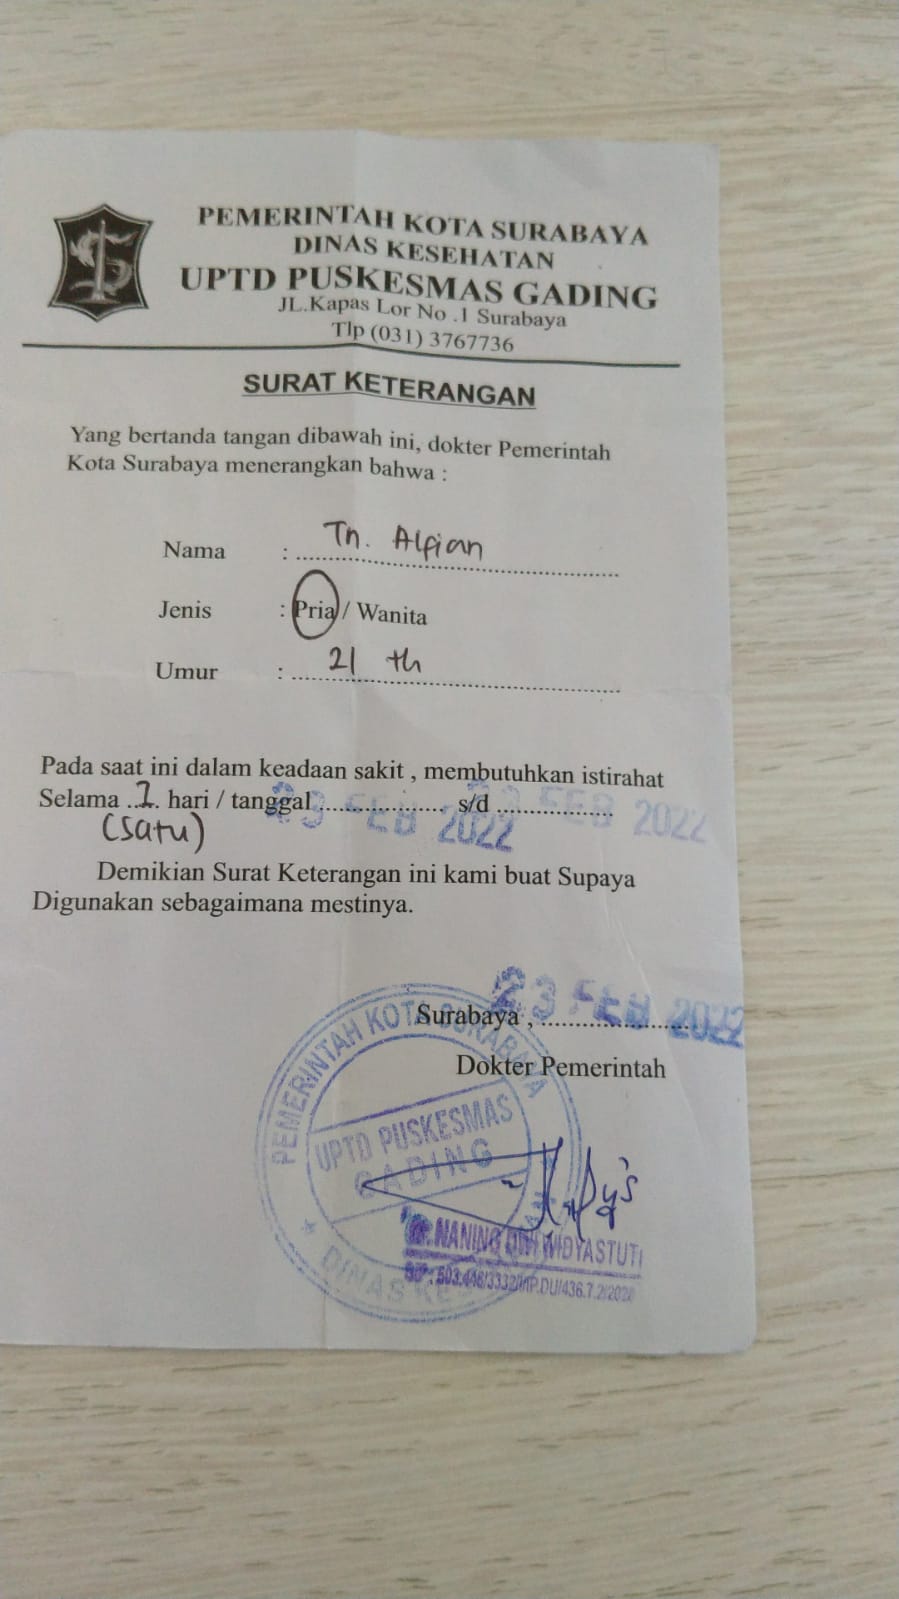 PEMERINTAH KOTA SURABAYA
DINAS KESEHATAN
UPTD PUSKESMAS GADING
JL.Kapas Lor No .1 Surabaya
Tlp (031) 3767736
SURAT KETERANGAN
Yang bertanda tangan dibawah ini, dokter Pemerintah
Kota Surabaya menerangkan bahwa :
Nama : Tn. Alfian
Jenis : Pria / Wanita
Umur : 21 th
Pada saat ini dalam keadaan sakit , membutuhkan istirahat
Selama ..1. hari / tanggal 23 FEB 2022 s/d 23 FEB 2022
(satu)
Demikian Surat Keterangan ini kami buat Supaya
Digunakan sebagaimana mestinya.
Surabaya , 23 FEB 2022
Dokter Pemerintah
PEMERINTAH KOTA SURABAYA
UPTD PUSKESMAS
GADING
DINAS
NANING WIDYASTUTI